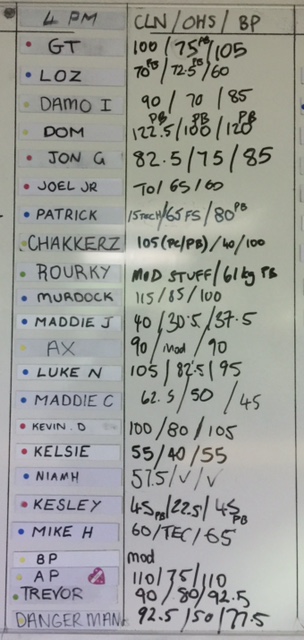 4 PM CLN/OHS/BP
GT 100/75PB/105
LOZ 70PB/72.5PB/60
DAMO I 90/70/85
DOM 122.5PB/100PB/120PB
JON G 82.5/75/85
JOEL JR 70/65/60
PATRICK 15TECH/65FS/80PB
CHAKKERZ 105(PC/PB)/40/100
ROURKY MOD STUFF/61kg PB
MURDOCK 115/85/100
MADDIE J 40/30.5/37.5
AX 90/mod/90
LUKE N 105/82.5/95
MADDIE C 62.5/50/45
KEVIN.D 100/80/105
KELSIE 55/40/55
NIAMH 57.5/√/√
KESLEY 45PB/22.5/45PB
MIKE H 60/TEC/65
BP mod
AP 110/75/110
TREVOR 90/80/92.5
DANGERMAN 92.5/50/77.5